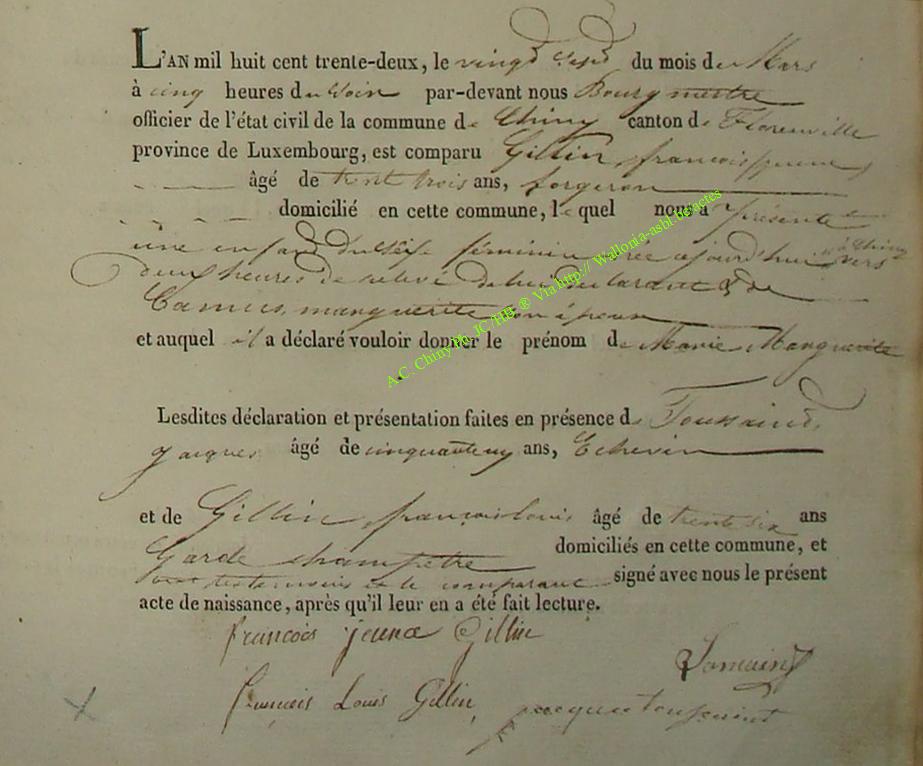 L'AN mil huit cent trente-deux, le vingt sept du mois de Mars
à cinq heures du Soir par-devant nous Bourgmestre
officier de l'état civil de la commune de Chiny canton de Florenville
province de Luxembourg, est comparu Gillin, françois jeune
âgé de trent trois ans, forgeron
domicilié en cette commune, le quel nous a présenté
une enfant du féminin née ajourd'hui à Chiny vers
deux heures de relevé de lui déclarant & de
Camus, marguerite son épouse
et auquel il a déclaré vouloir donner le prénom de Marie Marguerite
Lesdites déclaration et présentation faites en présence de Toussaind,
jacques âgé de cinquante un ans, Echevin
et de Gillin, françois louis âgé de trente six ans
Garde champetre domiciliés en cette commune, et
les temoins et le comparant signé avec nous le présent
acte de naissance, après qu'il leur en a été fait lecture.
francois jeune Gillin
françois Louis Gillin,
jacques toussaint
A.C. Chiny Ph. JC /HB ® Via http:// Wallonia-asbl.be/actes